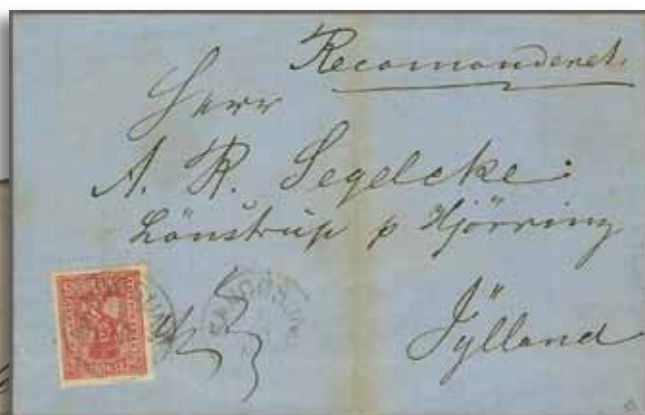 Recomanderet.
Herr
A. R. Segelcke.
Lönstrup p Hjörring
Jylland